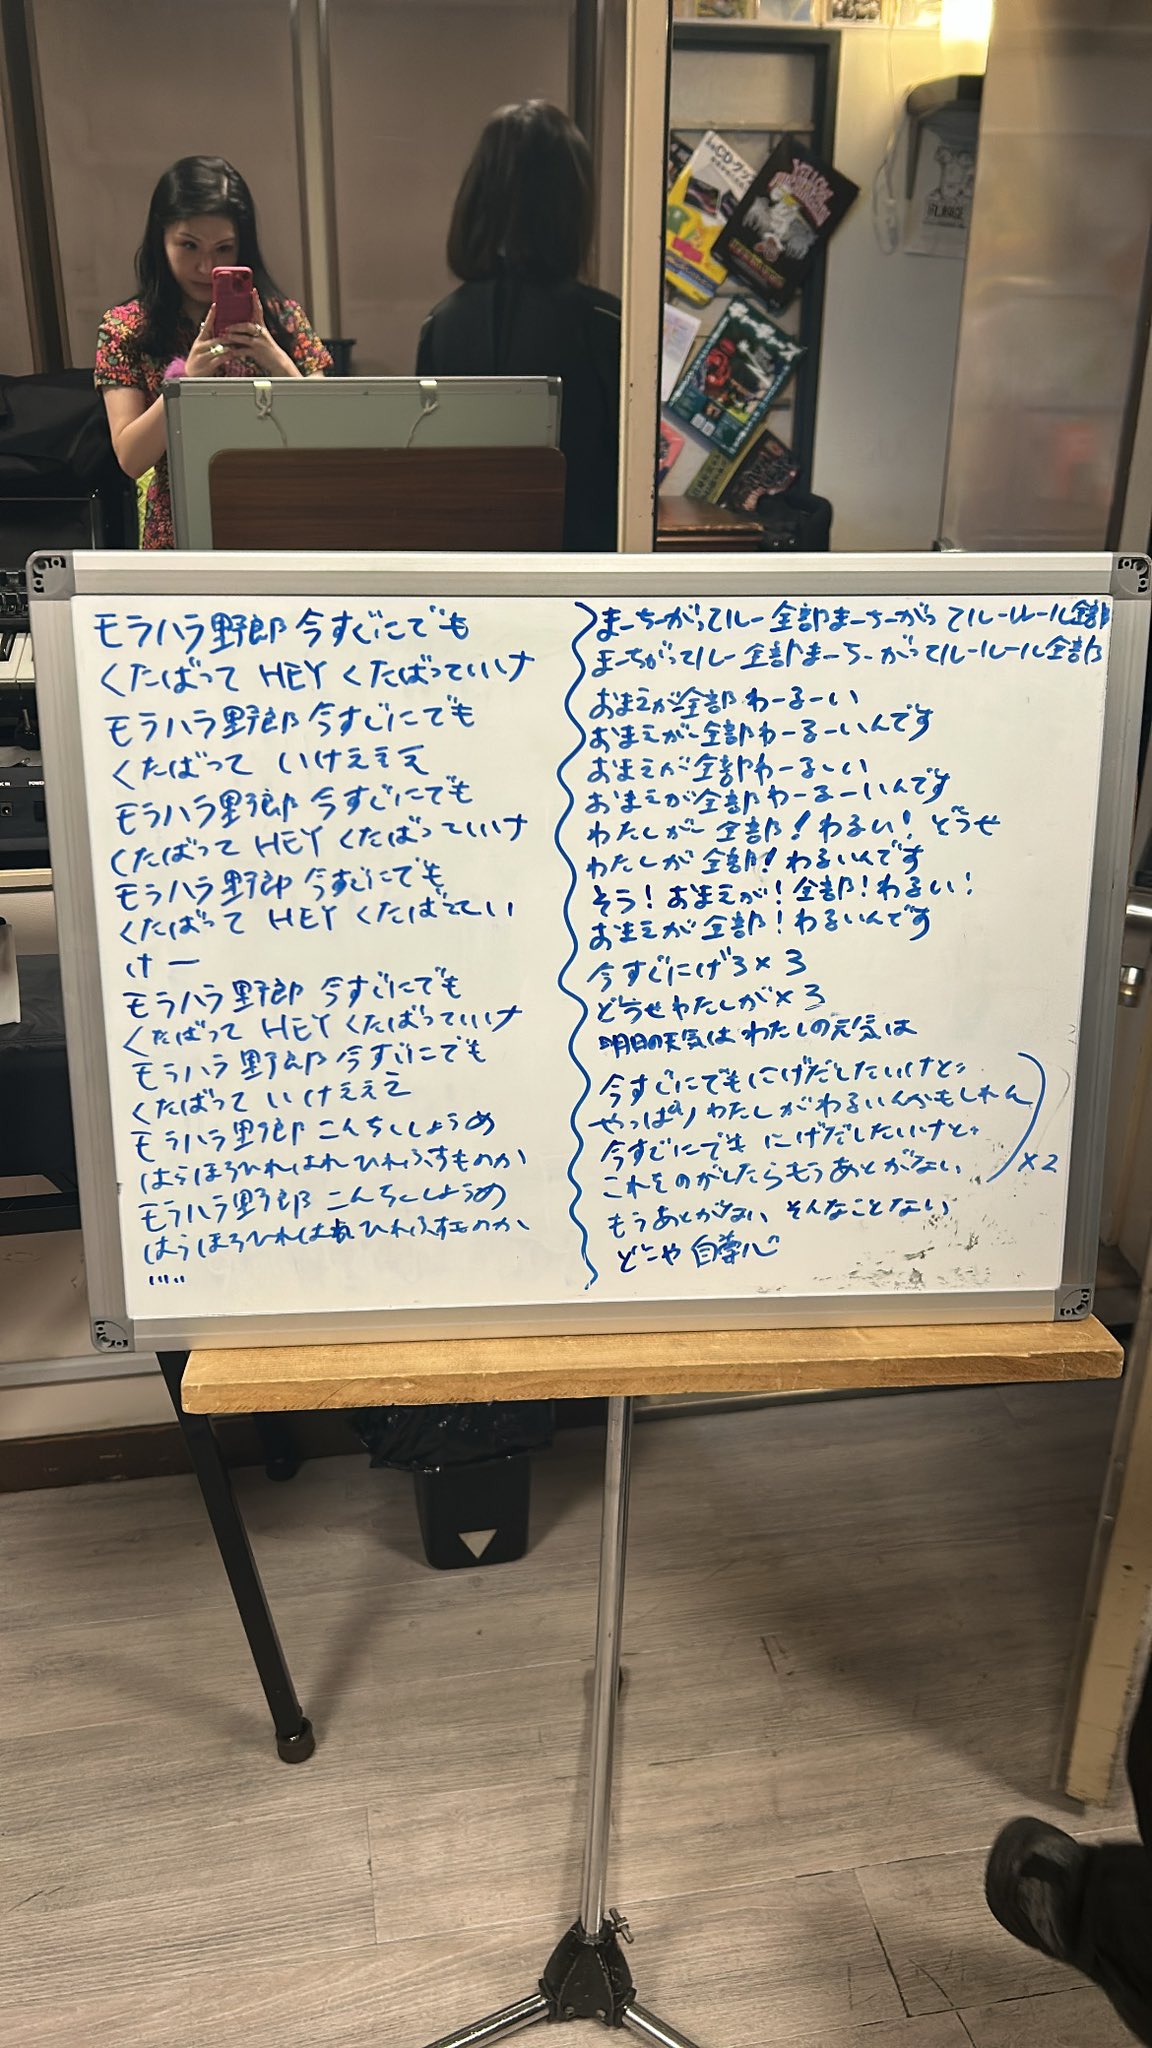 モラハラ野郎 今すぐにでも
くたばって HEY くたばっていいけ
モラハラ野郎 今すぐにでも
くたばって いけえええ
モラハラ野郎 今すぐにでも
くたばって HEY くたばっていいけ
モラハラ野郎 今すぐにでも
くたばって HEY くたばってい
けー
モラハラ野郎 今すぐにでも
くたばって HEY くたばっていいけ
モラハラ野郎 今すぐにでも
くたばって いけえええ
モラハラ野郎 こんちくしょうめ
はらほろひれはれ ひれふすものか
モラハラ野郎 こんちくしょうめ
はらほろひれはれ ひれふすものか
まーちーがってルー 全部まーちーがってルールール全部
まーちがってルー 全部まーちーがってルールール全部
おまえが全部 わーるーい
おまえがー全部わーるーいんです
おまえが全部わーるーい
おまえが全部わーるーいんです
わたしがー 全部!わるい! どうせ
わたしが 全部!わるいんです
そう!おまえが!全部!わるい!
おまえが全部!わるいんです
今すぐににげろ×3
どうせわたしが×3
明日の天気は わたしの元気は
今すぐにでもにげだしたいけど
やっぱりわたしがわるいんかもしれん
今すぐにでも にげだしたいけど
これをのがしたらもうあとがない
×2
もうあとがない そんなことない
どこや 自尊心